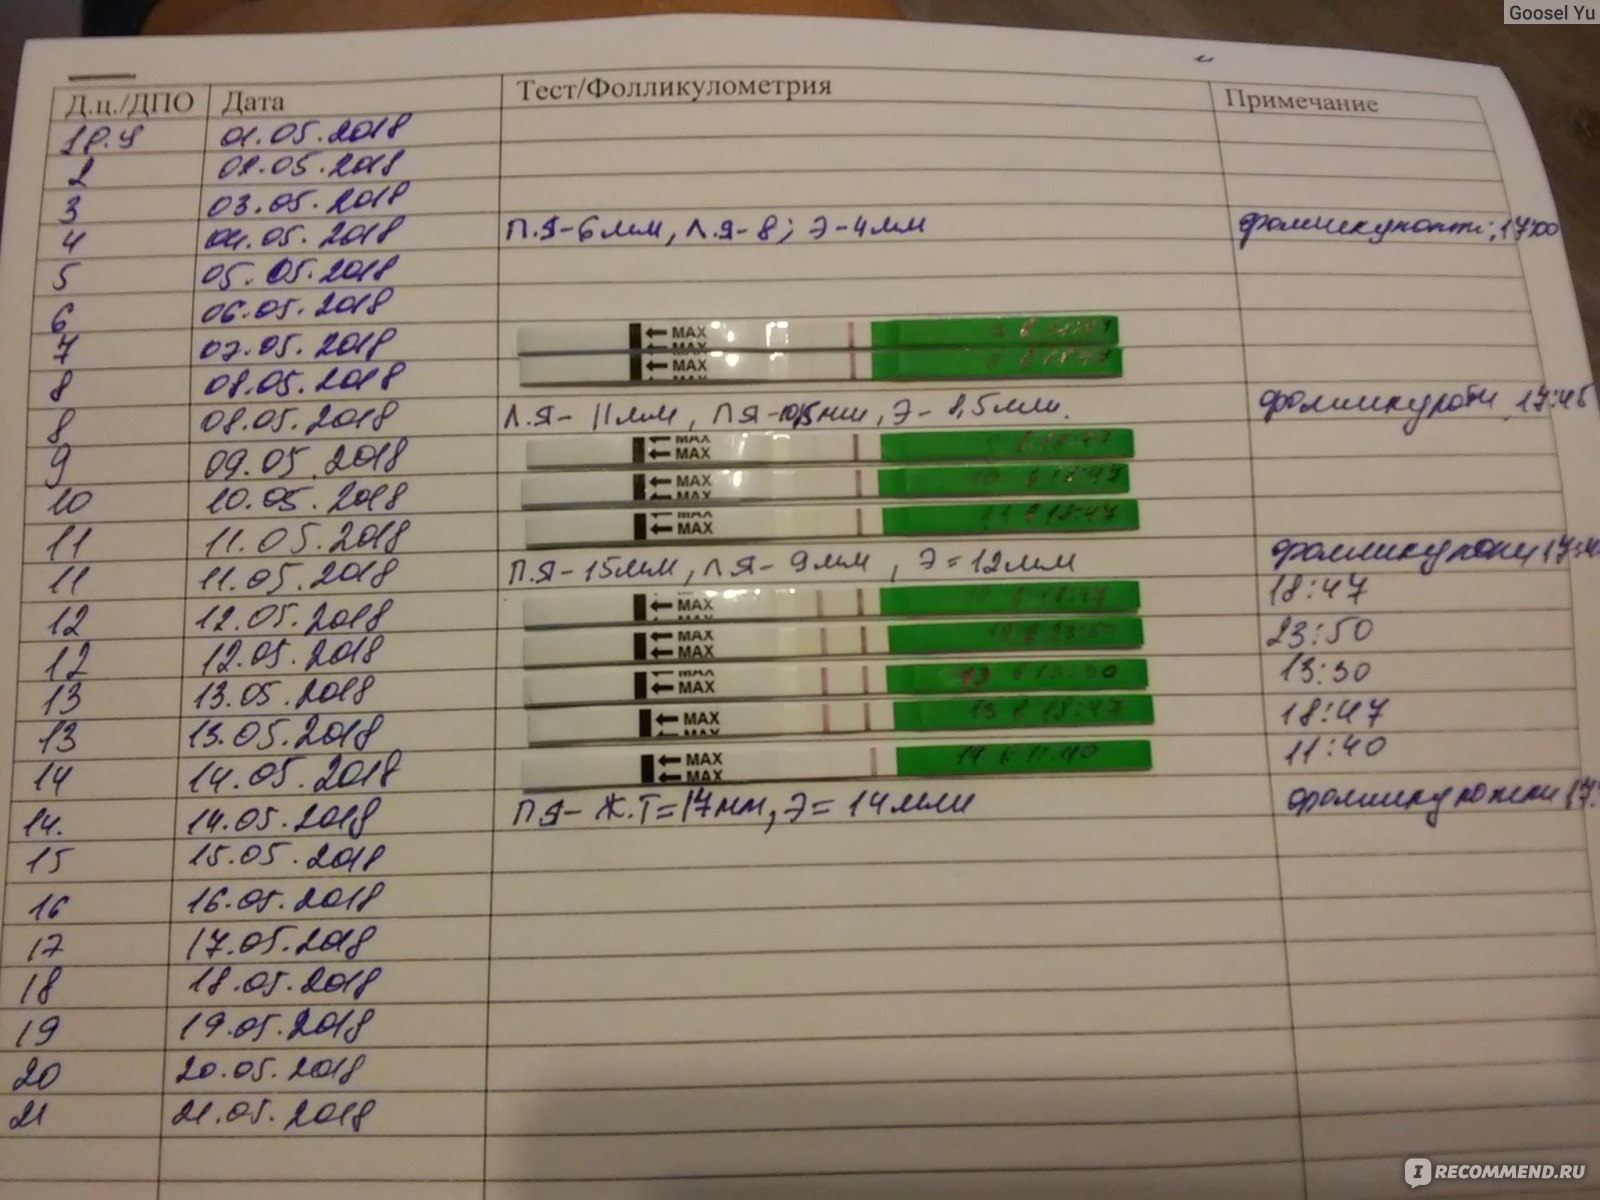 Goosel Yu
Д.ц./ДПО Дата Тест/Фолликулометрия Примечание
01.05.2018
2 02.05.2018
3 03.05.2018
4 04.05.2018 П.Я-6мм, Л.Я-8; Э-4мм 17:00
5 05.05.2018
6 06.05.2018
7 07.05.2018 MAX
8 08.05.2018 MAX
8 08.05.2018 Л.Я- 11мм, ПЯ-10,5мм, Э- 8,5мм. 17:45
9 09.05.2018 MAX MAX
10 10.05.2018 MAX MAX
11 11.05.2018 MAX MAX 11 в 18:47
11 11.05.2018 П.Я-15мм, ЛЯ- 9мм, Э=12мм
12 12.05.2018 MAX 18:47
12 12.05.2018 MAX MAX 12 в 23:50 23:50
13 13.05.2018 MAX MAX 13 в 13:30 13:30
13 13.05.2018 MAX 13 в 18:47 18:47
14 14.05.2018 MAX MAX 14 в 11:40 11:40
14. 14.05.2018 ПЯ- Ж.Т=17мм, Э= 14мм
15 15.05.2018
16 16.05.2018
17 17.05.2018
18 18.05.2018
19 19.05.2018
20 20.05.2018
21 21.05.2018
IRECOMMEND.RU